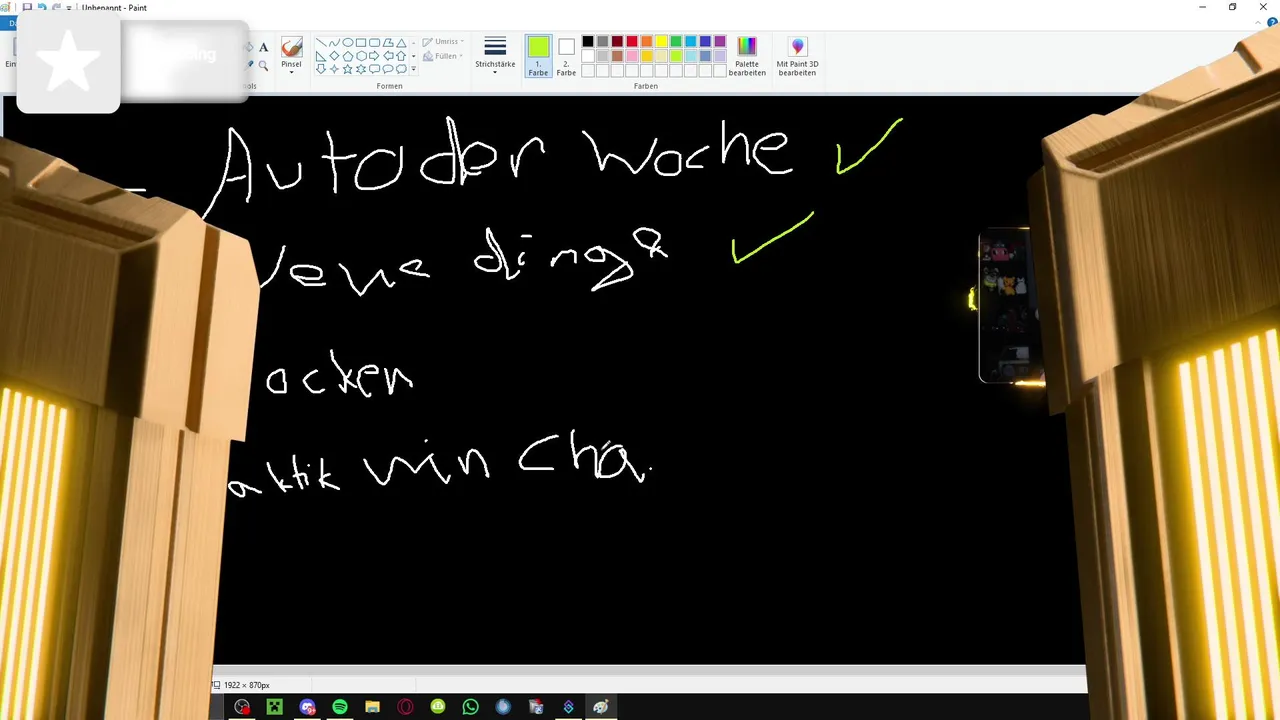 Unbenannt - Paint
Pinsel
Formen
Umriss
Füllen
Strichstärke
1.
Farbe
2.
Farbe
Palette
bearbeiten
Mit Paint 3D
bearbeiten
Farben
- Auto der Woche
dinge
ocken
aktik win Cha.
1922 × 870px